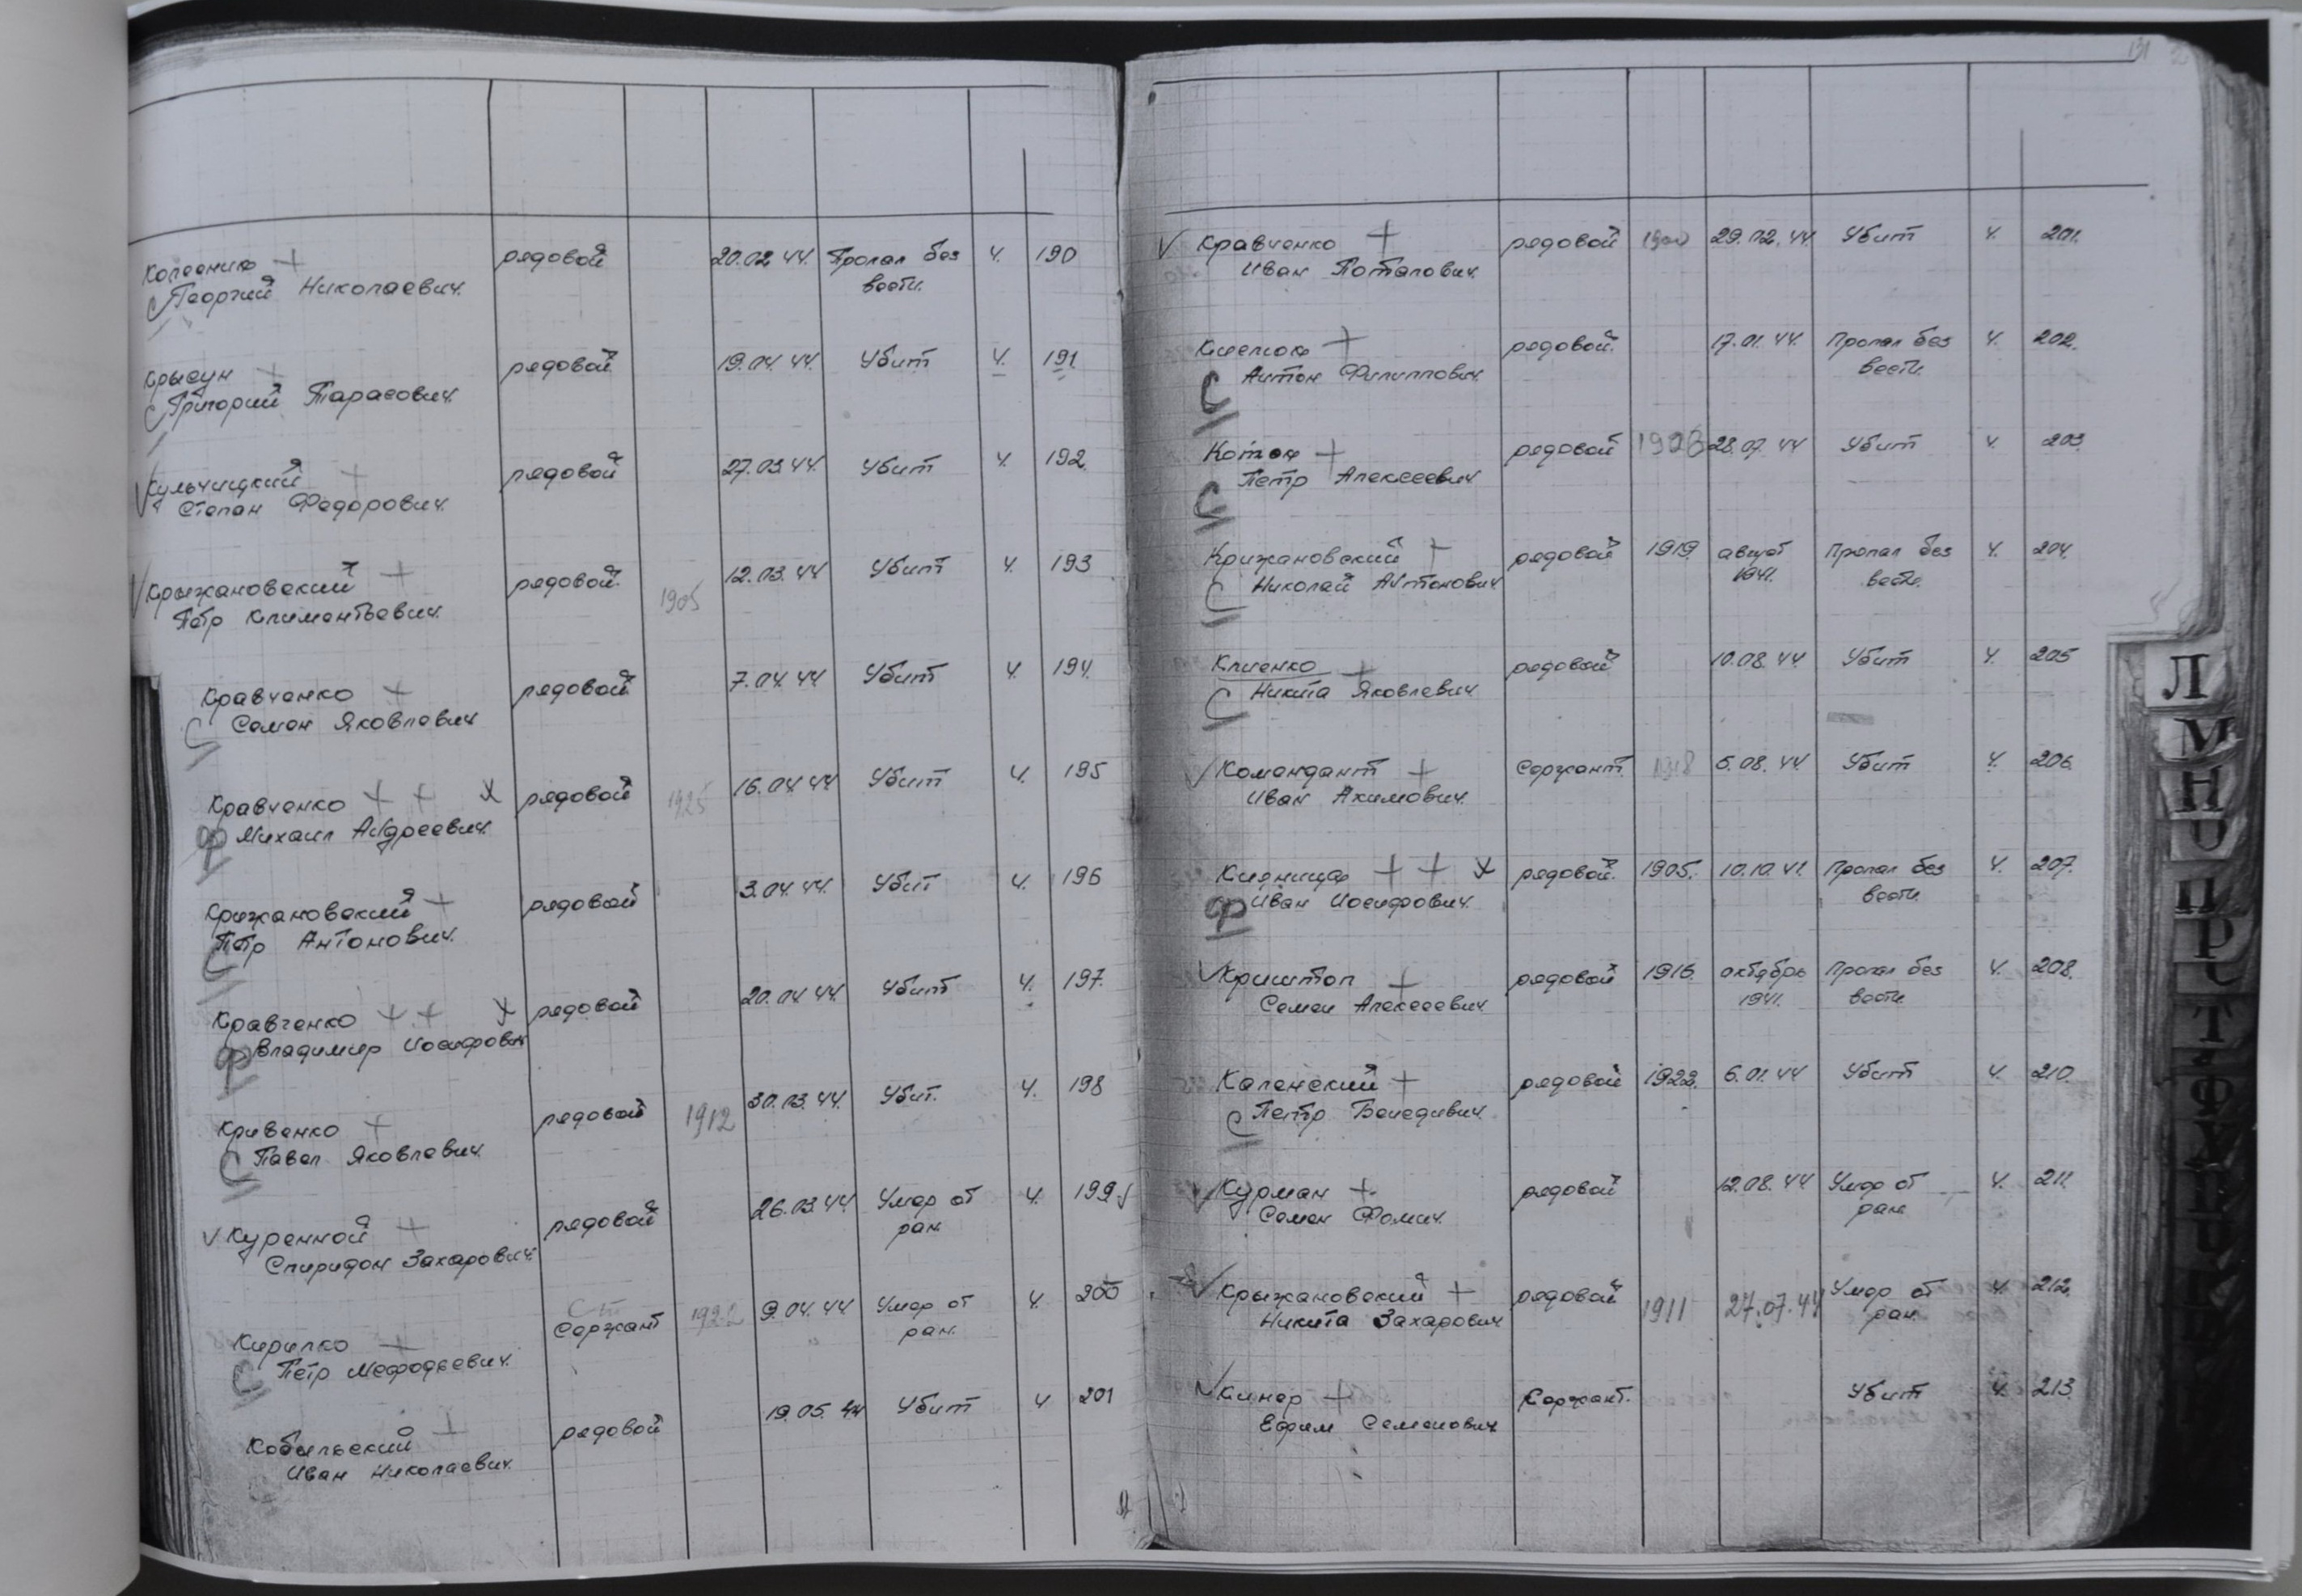 Колесник + рядовой 20.02 44. Пропал без ч. 190
С Георгий Николаевич. вести.
Крысун + рядовой 19.04. 44. Убит ч. 191
С Григорий Тарасович.
√ Кульчицкий + рядовой 27.03 44. Убит ч. 192
Степан Федорович.
√ Крыжановский + рядовой. 1905 12.03. 44 Убит ч. 193
Петр Климентьевич.
Кравченко + рядовой 7.04. 44 Убит ч. 194.
С Семен Яковлевич
Кравченко + + х рядовой 1925 16.04 44 Убит ч. 195
Ф Михаил Андреевич.
Крижановский + рядовой 3.04. 44. Убит ч. 196
С Петр Антонович.
Кравченко + + х рядовой 20.04 44. Убит ч. 197.
Ф Владимир Иосифович
Кривенко + рядовой 1912 30.03. 44. Убит. ч. 198
С Павел Яковлевич.
√ Куренной + рядовой 26.03 44 Умер от ч. 199 √
Спиридон Захарович. ран.
Кирилко + Ст Сержант 1922 9.04. 44 Умер от ч. 200
С Петр Мефодьевич. ран.
Кобыльский + рядовой 19.05. 44 Убит ч 201
Иван Николаевич.
131
√ Кравченко + рядовой 1900 29.02. 44 Убит ч. 201.
Иван Потапович.
+ рядовой. 17.01. 44. Пропал без ч. 202.
С Антон Филиппович. вести.
Коток + рядовой 28.07. 44 Убит ч. 203.
С Петр Алексеевич
Крижановский + рядовой 1919. август Пропал без ч. 204.
С Николай Антонович 1941. вести.
Клиенко + рядовой 10.08. 44 Убит ч. 205
С Никита Яковлевич.
√ Комендант + Сержант 1918 5.08. 44. Убит ч. 206.
Иван Акимович.
Кияница + + х рядовой. 1905. 10.10. 41. Пропал без ч. 207.
Ф Иван Иосифович. вести.
√ Криштоп + рядовой 1916. октябрь Пропал без ч. 208.
Семен Алексеевич. 1941. вести
Каленский + рядовой 1922. 6.01. 44 Убит ч. 210.
С Петр
√ Курман + рядовой 12.08. 44 Умер от ч. 211.
Семен Фомич. ран
√ Крыжановский + рядовой 1911 27.07.44 Умер от ч. 212.
Никита Захарович ран.
√ Кинер + Сержант. Убит ч. 213.
Ефим Семенович
Л
М
Н
О
П
Р
С
Т
У